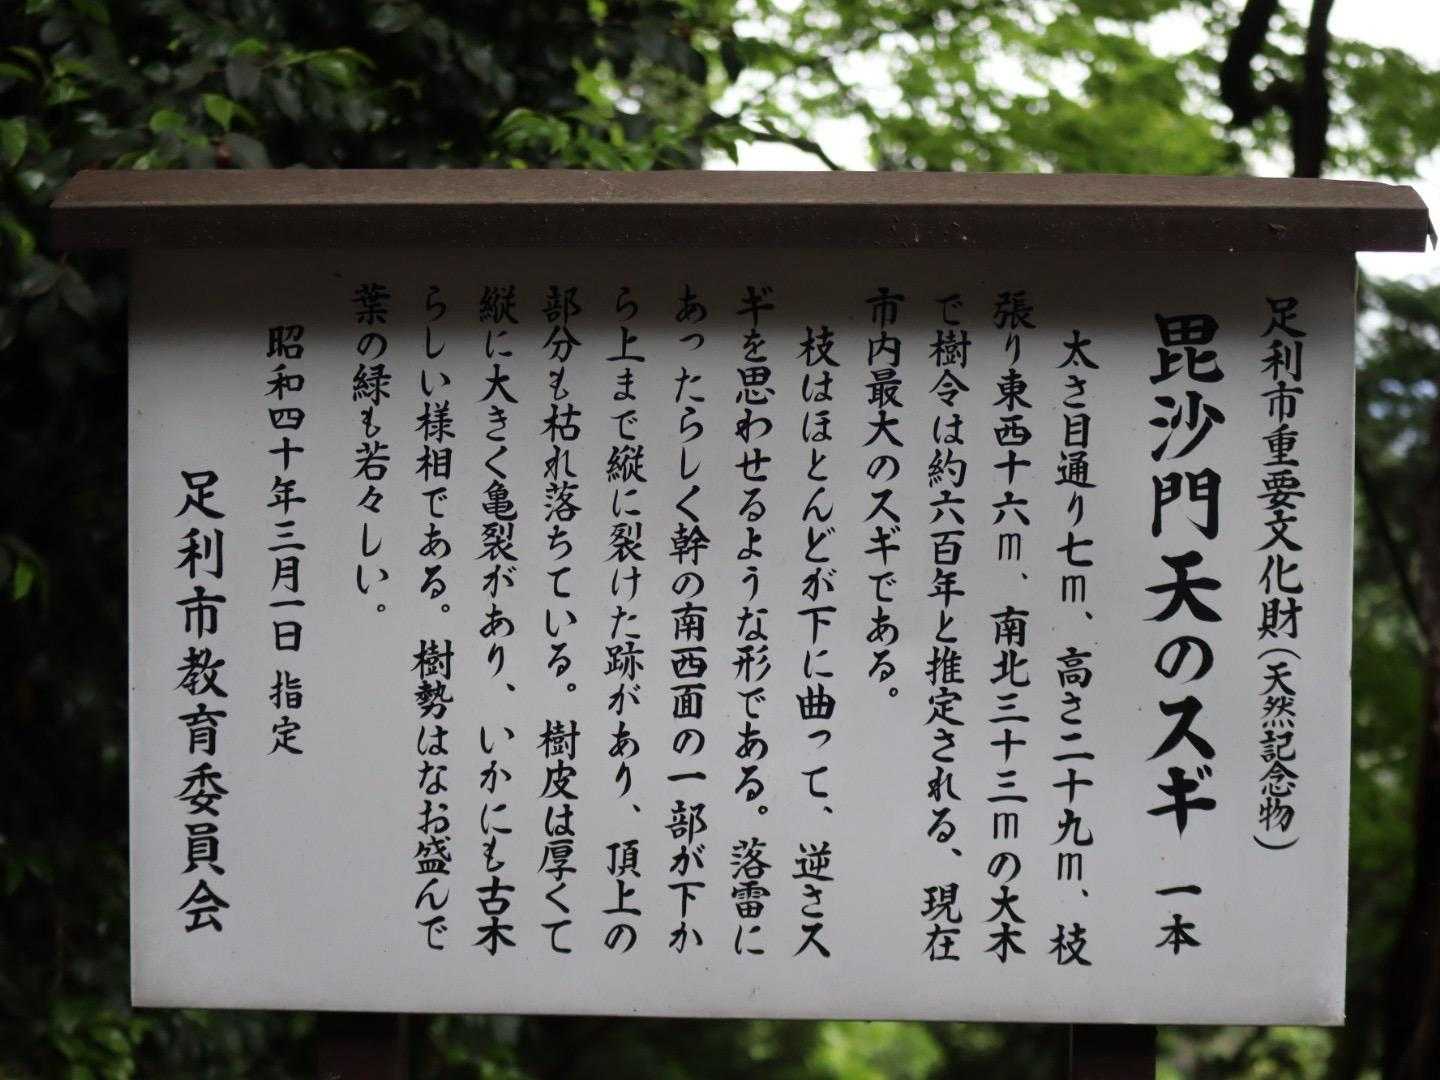 足利市重要文化財(天然記念物)
毘沙門天のスギ 一本
太さ目通り七m、高さ二十九m、枝
張り東西十六m、南北三十三mの大木
で樹令は約六百年と推定される、現在
市内最大のスギである。
枝はほとんどが下に曲って、逆さス
ギを思わせるような形である。落雷に
あったらしく幹の南西面の一部が下か
ら上まで縦に裂けた跡があり、頂上の
部分も枯れ落ちている。樹皮は厚くて
縦に大きく亀裂があり、いかにも古木
らしい様相である。樹勢はなお盛んで
葉の緑も若々しい。
昭和四十年三月一日 指定
足利市教育委員会